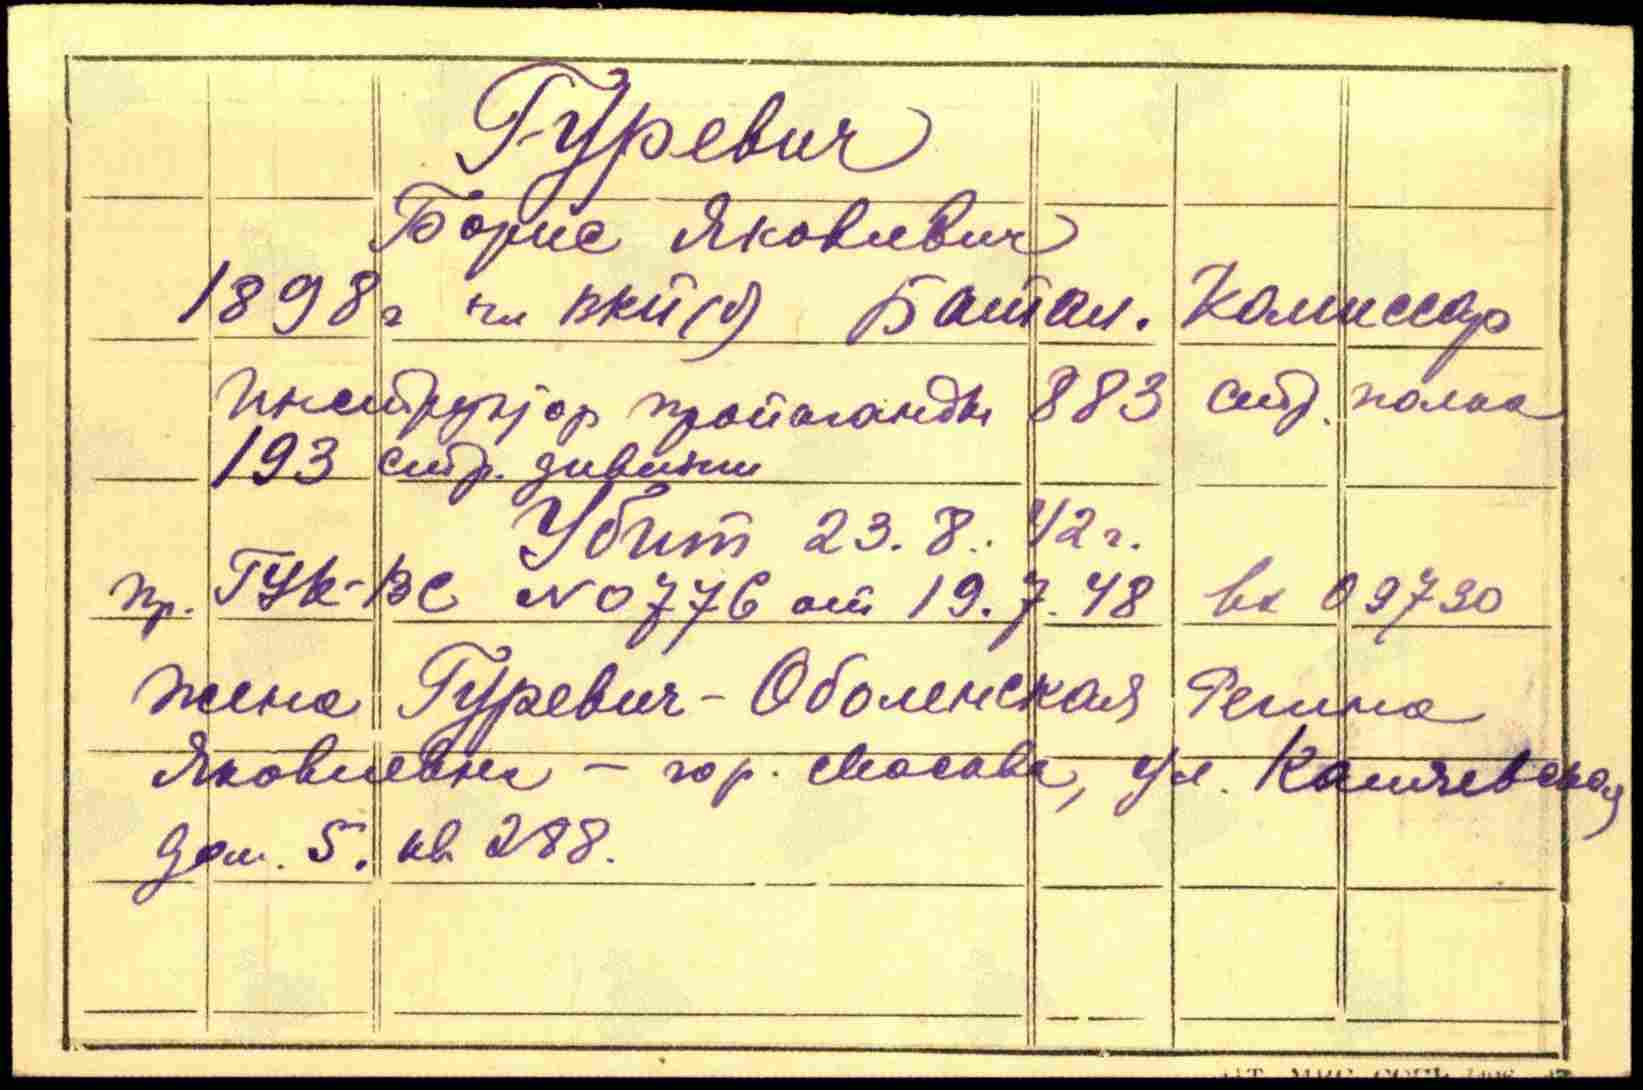 Гуревич
Борис Яковлевич
1898 г чл ВКП(б) Батал. Комиссар
Инструктор пропаганды 883 стр. полка
193 стр. дивизии
Убит 23.8.42 г.
Пр. ГУК-ВС № 0776 от 19.7.48 вх 09790
Жена Гуревич-Оболенская Регина
Яковлевна - гор. Москва, ул.
дом. 5. кв 288.